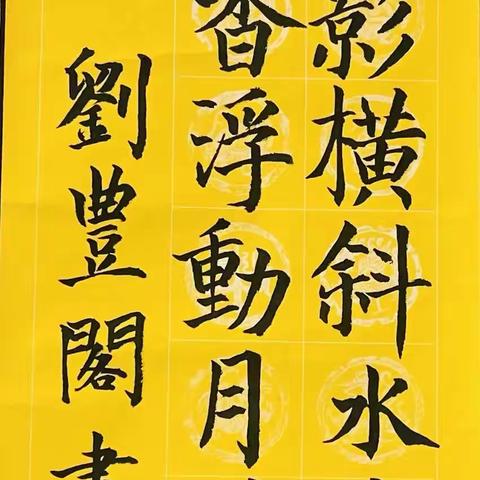 影橫斜水
香浮動月
劉豊閣書